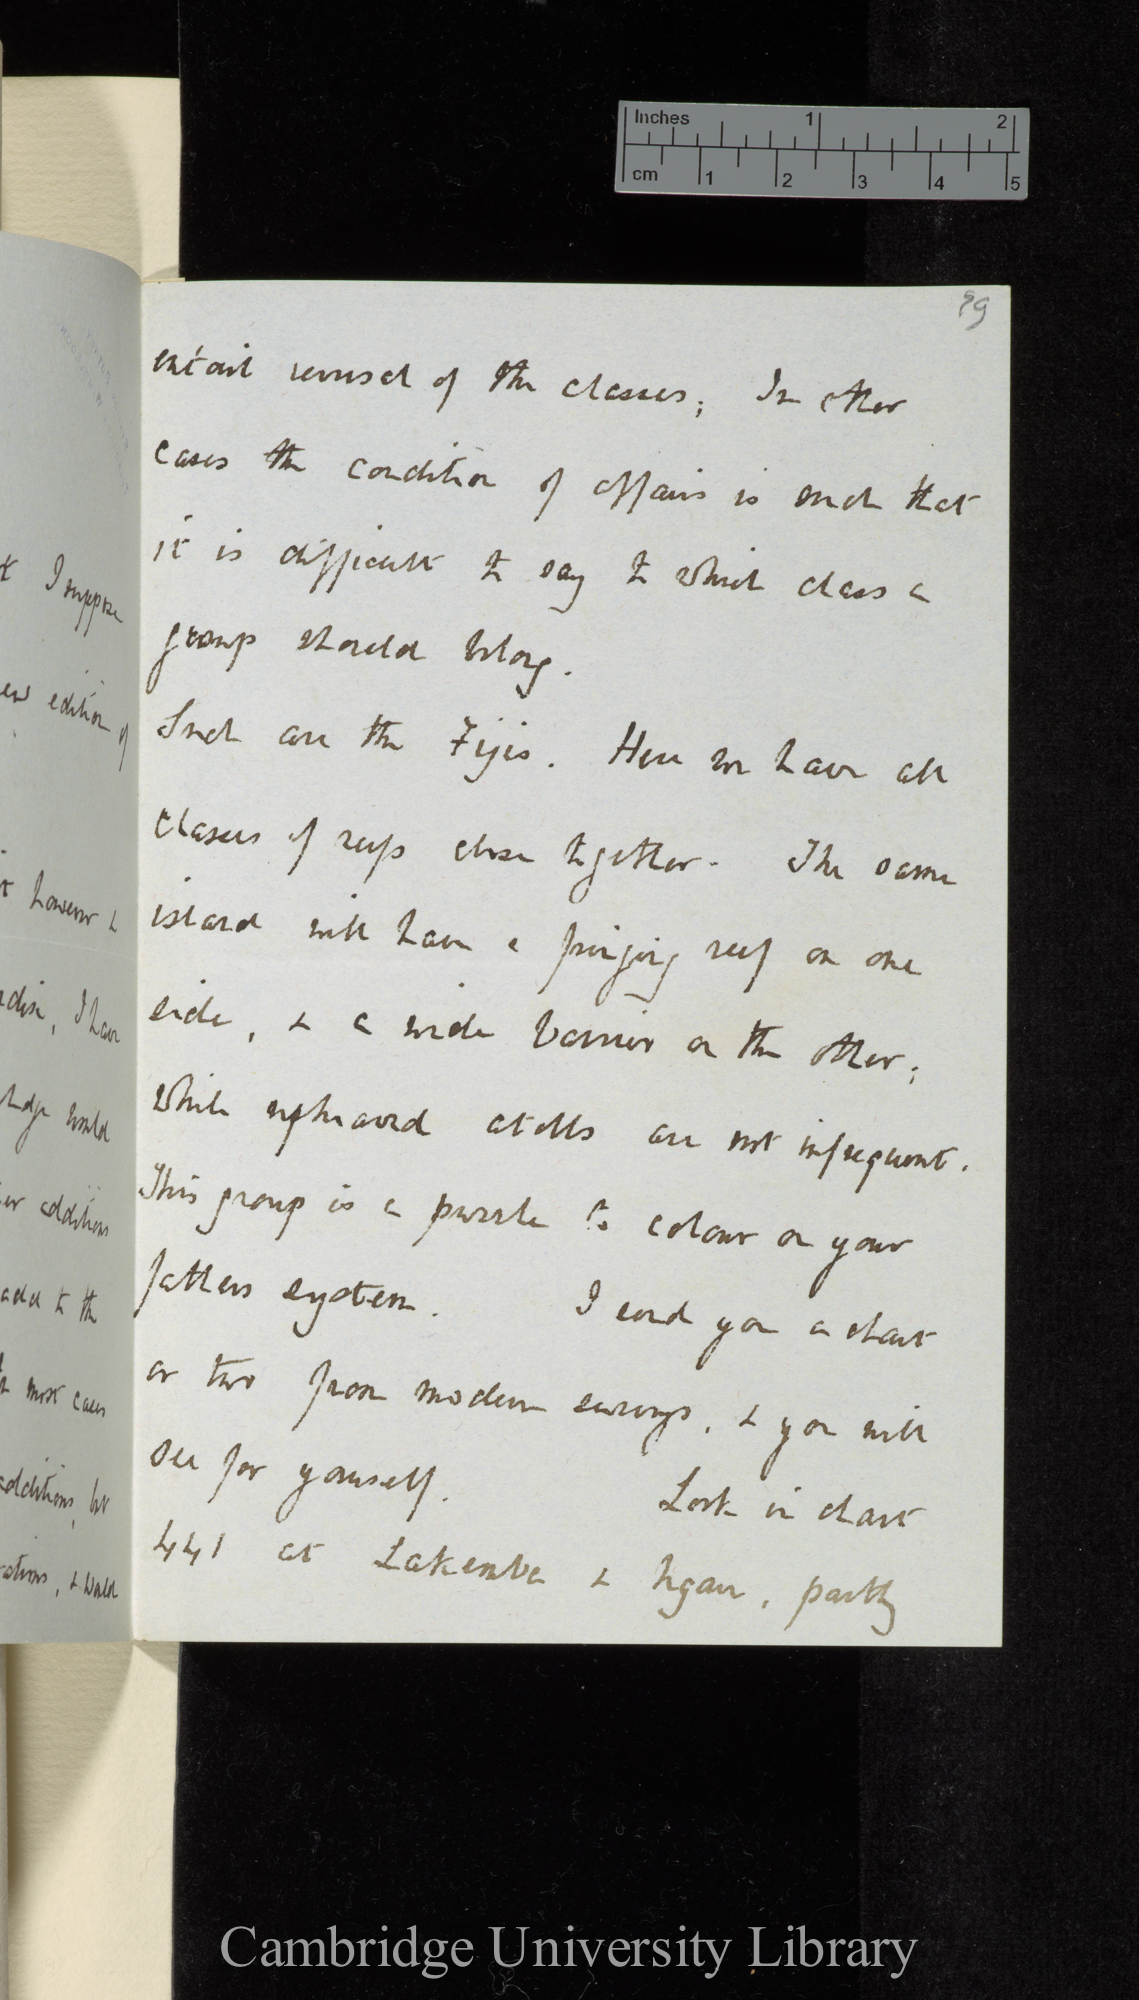 Inches 1 2
cm 1 2 3 4 5
t I suppose
new edition of
however &
I have
would
additions
add to the
most cases
additions, but
& would
99
entail removal of the classes; In other
cases the condition of affairs is such that
it is difficult to say to which class a
group should belong.
Such are the Fijis. Here we have all
classes of reefs close together. The same
island will have a fringing reef on one
side, & a wide barrier on the other;
while upheaved atolls are not infrequent.
This group is a puzzle to colour on your
fathers system. I send you a chart
or two from modern surveys, & you will
see for yourself. Look in chart
441 at Lakemba & Ngau, partly
Cambridge University Library